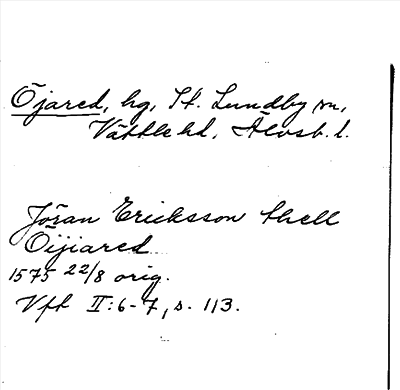 Öjared, hg, St. Lundby sn,
Vättle hd, Älvsb. l.
Jöran Ericksson thell
Öijiared
1575 22/8 orig.
Vfh II:6-7, s. 113.